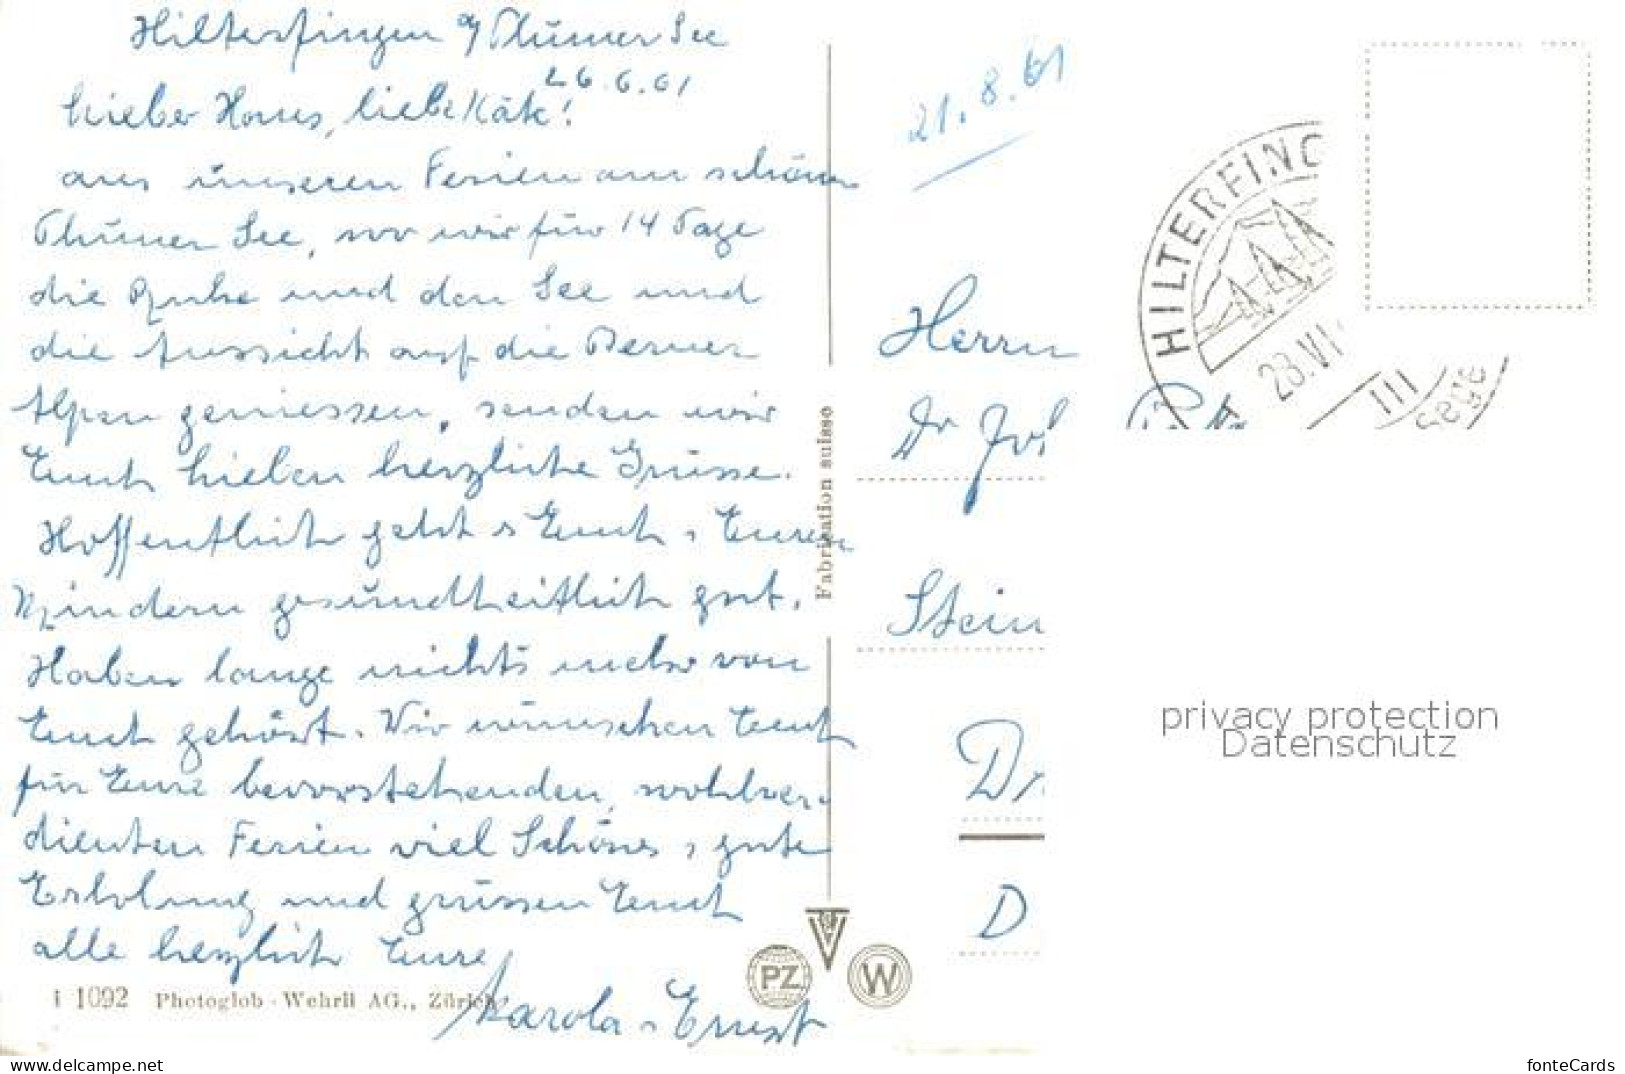 Hilterfingen a/Thuner See
26.6.61
Lieber Hans, liebe Käte!
aus unseren Ferien am schönen
Thuner See, wo wir für 14 Tage
die Ruhe und den See und
die Aussicht auf die Berner
Alpen geniessen, senden wir
Euch lieben herzliche Grüsse.
Hoffentlich geht's Euch + Euren
Kindern gesundheitlich gut.
Haben lange nichts mehr von
Euch gehört. Wir wünschen Euch
für Eure bevorstehenden, wohlver-
dienten Ferien viel Schönes + gute
Erholung und grüssen Euch
alle herzlich Eure
Karola + Ernst
1092 Photoglob-Wehrli AG., Zürich
Fabrication suisse
PZ
W
21.8.61
HILTERFING
28.VI
III
Herrn
Dr Joh
Stein
D
privacy protection
Datenschutz
www.delcampe.net
fonteCards